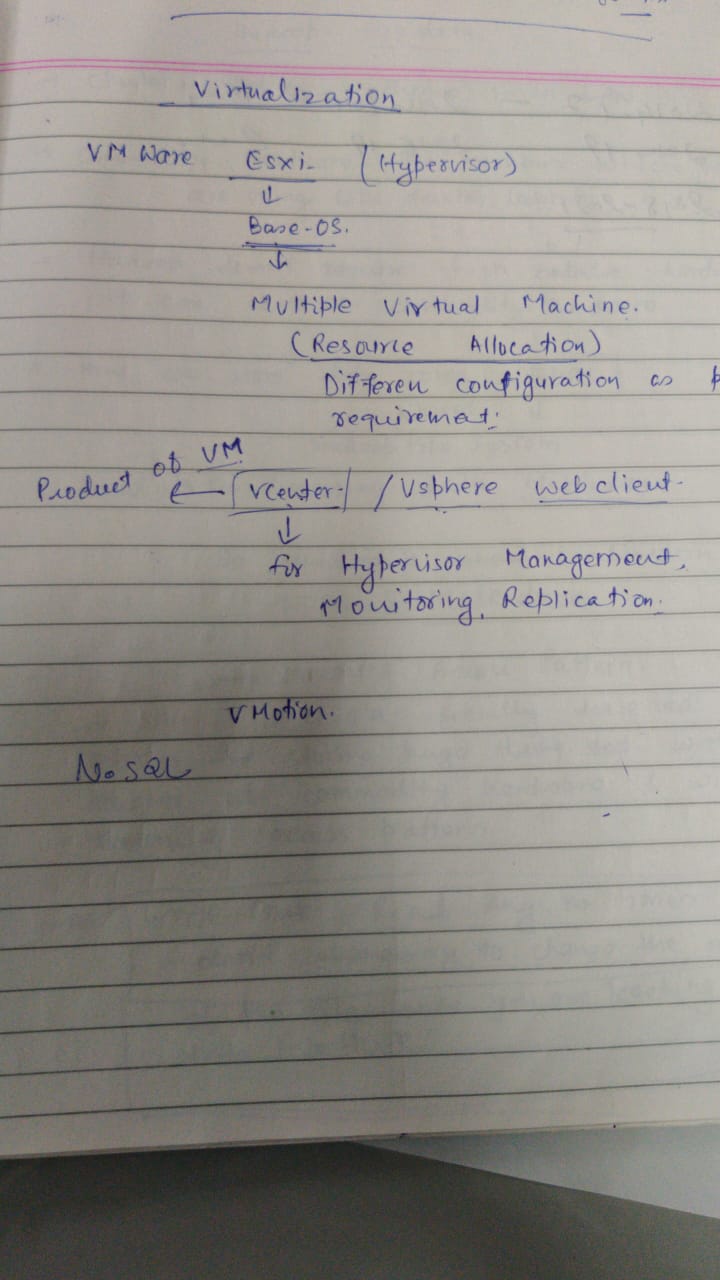 Virtualization
VM Ware Esxi (Hypervisor)
↓
Base-OS.
↓
Multiple Virtual Machine.
(Resource Allocation)
Differen configuration as
requiremat.
Product of VM
← vcenter / Vsphere web client
↓
for Hypervisor Management,
Monitoring, Replication.
VMotion.
No SQL